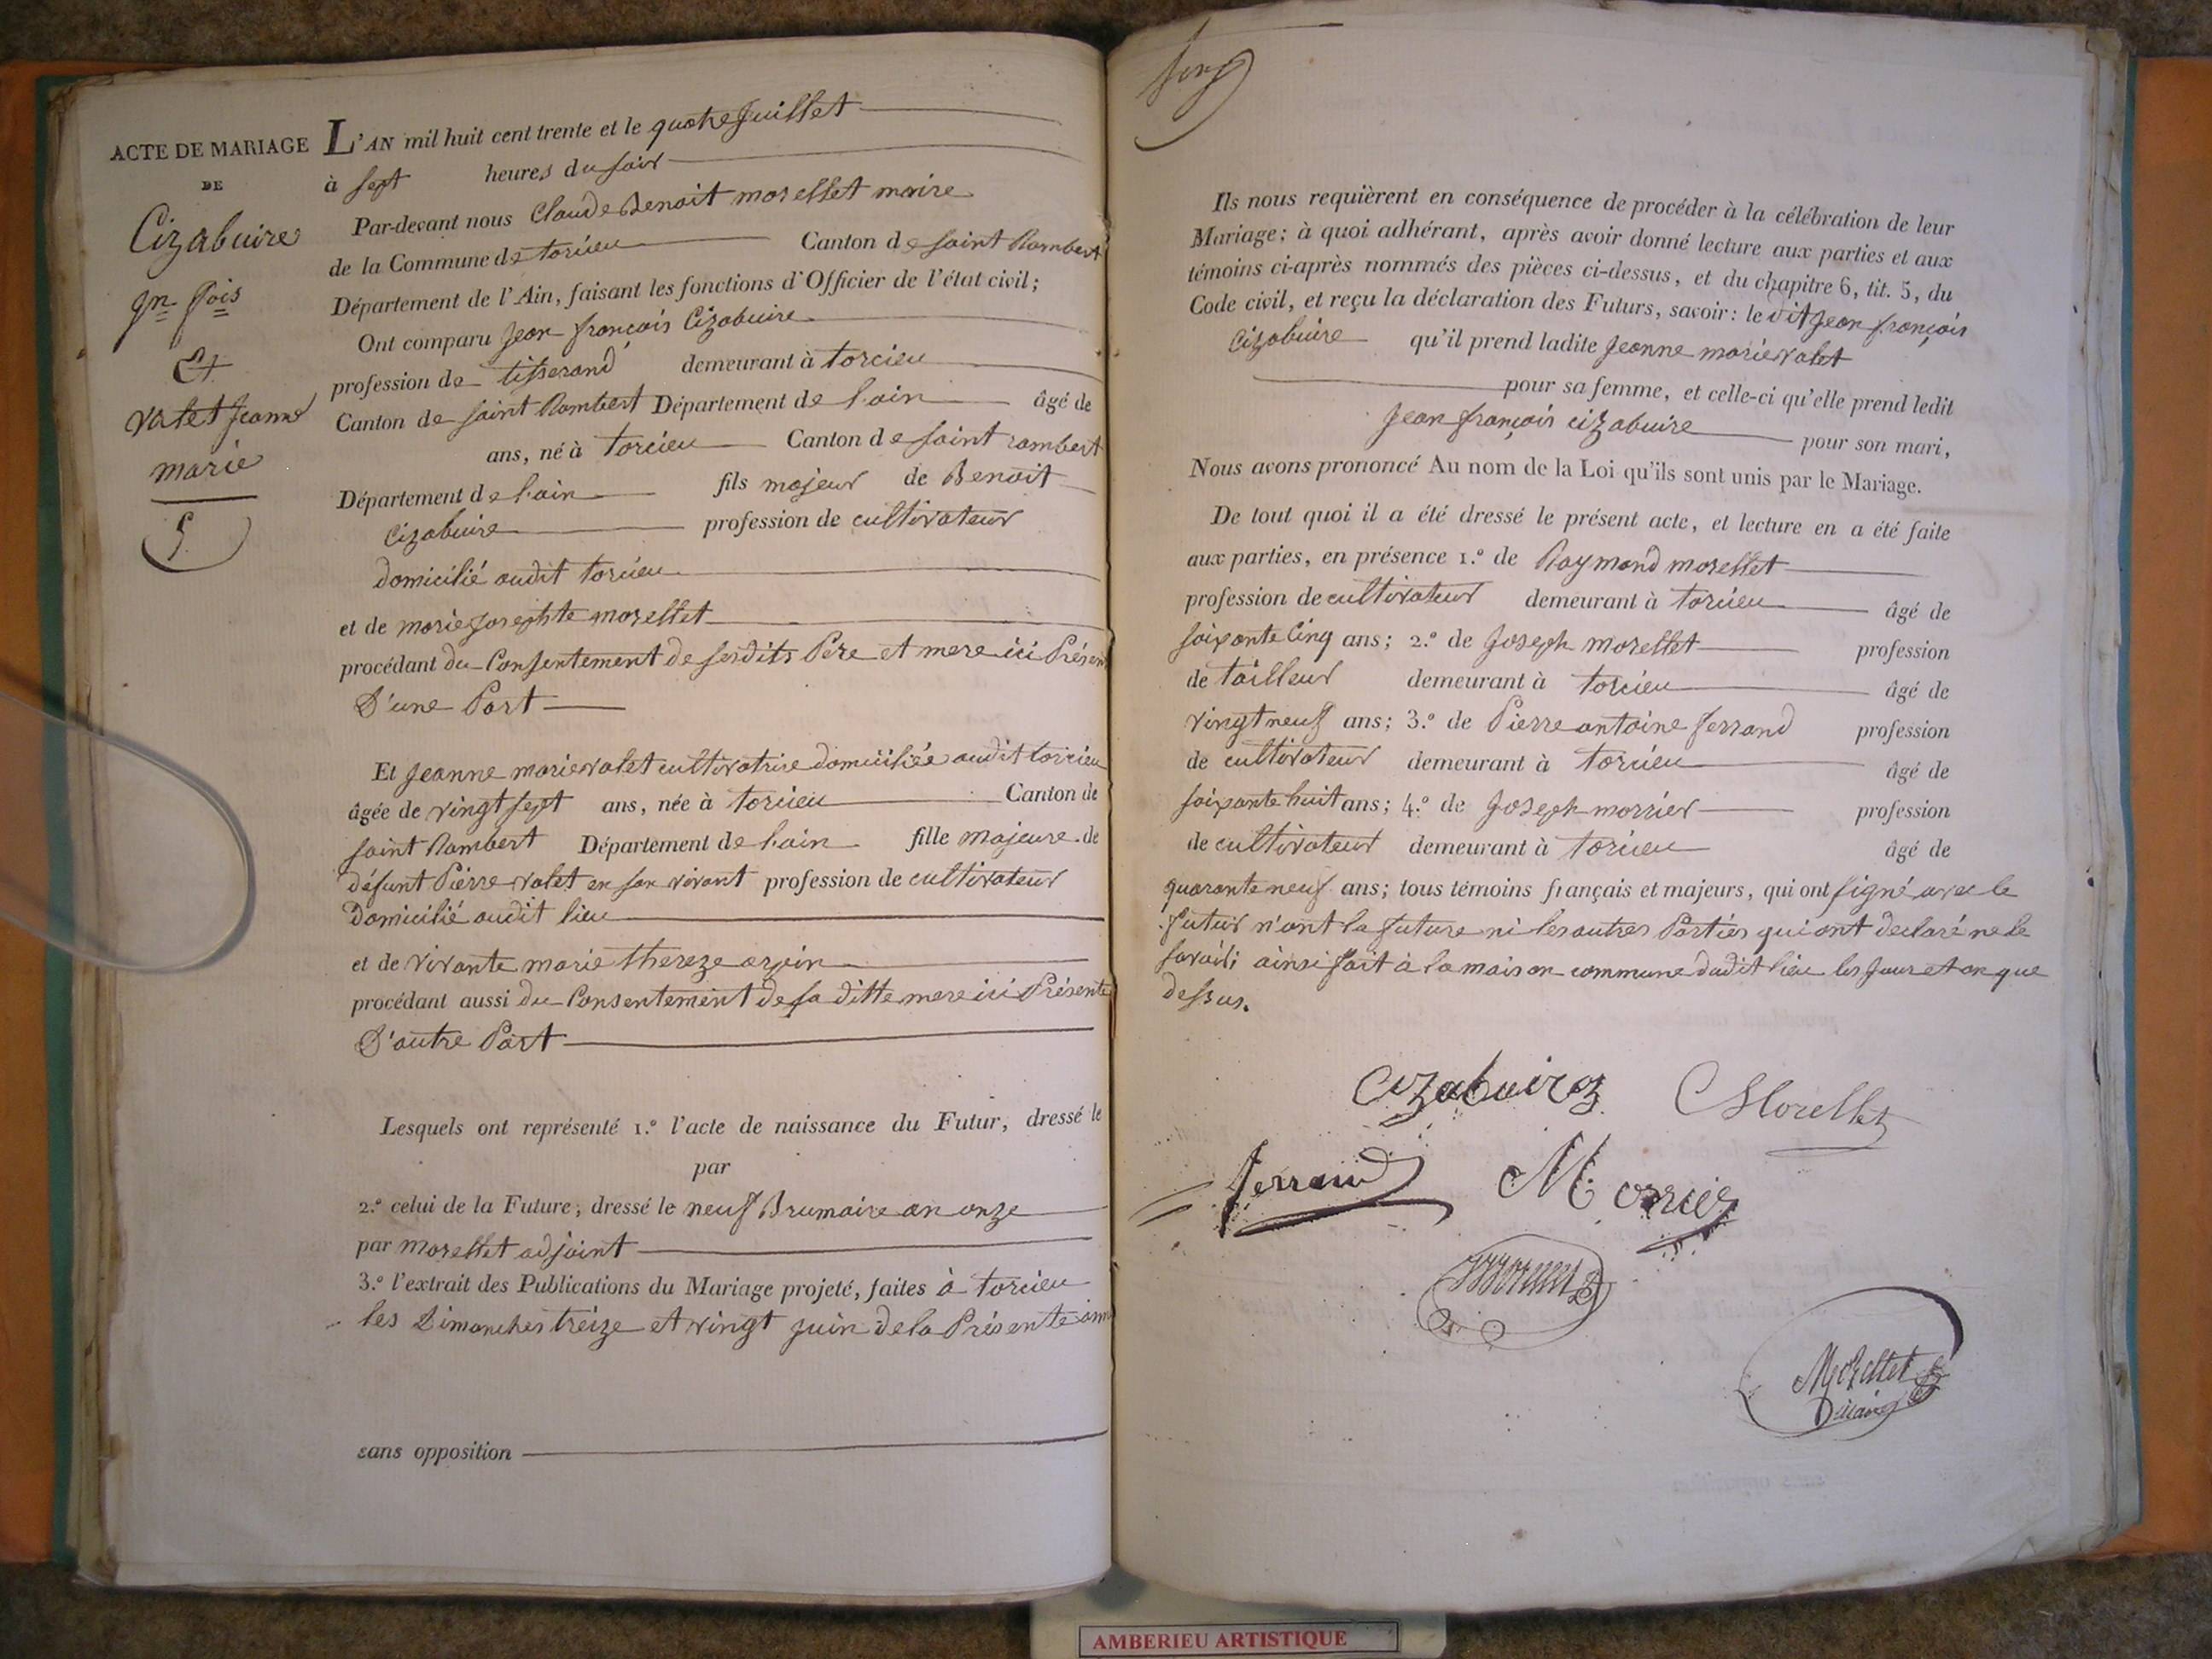 ACTE DE MARIAGE
DE
Cizabuire
Jn fois
Et
valet Jeanne
marie
5
L'AN mil huit cent trente et le quatre Juillet
à sept heures du soir
Par-devant nous Claude Benoit morellet maire
de la Commune de torcieu Canton de saint Rambert
Département de l'Ain, faisant les fonctions d'Officier de l'état civil;
Ont comparu Jean françois Cizabuire
profession de tisserand demeurant à torcieu
Canton de saint Rambert Département de l'ain âgé de
ans, né à torcieu Canton de saint rambert
Département de l'ain fils majeur de Benoit
Cizabuire profession de cultivateur
domicilié audit torcieu
et de marie Josephte morellet
procédant du Consentement de sesdits Pere et mere ici Présent
D'une Part
Et Jeanne marie valet cultivatrise domiciliée audit torcieu
âgée de vingt sept ans, née à torcieu Canton de
saint Rambert Département de l'ain fille majeure de
défunt Pierre valet en son vivant profession de cultivateur
Domicilié audit lieu
et de vivante marie thereze
procédant aussi du Consentement de sa ditte mere ici Présente
D'autre Part
Lesquels ont représenté 1.º l'acte de naissance du Futur, dressé le
par
2.º celui de la Future, dressé le neuf Brumaire an onze
par morellet adjoint
3.º l'extrait des Publications du Mariage projeté, faites à torcieu
les Dimanches treize et vingt juin de la Présente
sans opposition
Ils nous requièrent en conséquence de procéder à la célébration de leur
Mariage; à quoi adhérant, après avoir donné lecture aux parties et aux
témoins ci-après nommés des pièces ci-dessus, et du chapitre 6, tit. 5, du
Code civil, et reçu la déclaration des Futurs, savoir: le dit Jean françois
Cizabuire qu'il prend ladite Jeanne marie valet
pour sa femme, et celle-ci qu'elle prend ledit
Jean françois cizabuire pour son mari,
Nous avons prononcé Au nom de la Loi qu'ils sont unis par le Mariage.
De tout quoi il a été dressé le présent acte, et lecture en a été faite
aux parties, en présence 1.º de Raymond morellet
profession de cultivateur demeurant à torcieu âgé de
soixante Cinq ans; 2.º de Joseph morellet profession
de tailleur demeurant à torcieu âgé de
vingt neuf ans; 3.º de Pierre antoine ferrand profession
de cultivateur demeurant à torcieu âgé de
soixante huit ans; 4.º de Joseph morrier profession
de cultivateur demeurant à torcieu âgé de
quarante neuf ans; tous témoins français et majeurs, qui ont signé avec le
futur n'ont la future ni les autres Parties qui ont declaré ne le
savoir; ainsi fait à la maison commune dudit lieu les Jour et an que
dessus.
Cizabuirez Morellet
ferrand Morrier
Morellet
Maire
AMBERIEU ARTISTIQUE